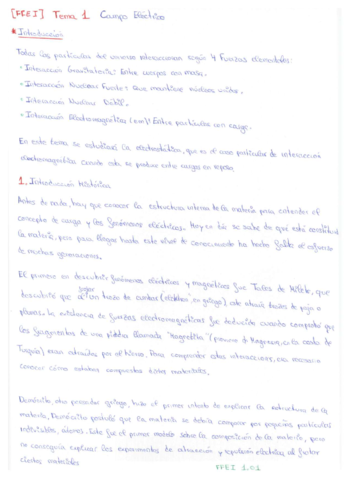 [FFEI] Tema 1 Campo Eléctrico
* Introducción
Todas las partículas del universo interaccionan según 4 Fuerzas elementales:
- Interacción Gravitatoria: Entre cuerpos con masa.
- Interacción Nuclear Fuerte: Que mantiene núcleos unidos.
- Interacción Nuclear Débil.
- Interacción Electromagnética (em): Entre partículas con carga.
En este tema se estudiará la electrostática, que es el caso particular de interacción
electromagnética cuando esta se produce entre cargas en reposo.
1. Introducción Histórica
Antes de nada, hay que conocer la estructura interna de la materia para entender el
concepto de carga y los fenómenos eléctricos. Hoy en día se sabe de qué está constituida
la materia, pero para llegar hasta este nivel de conocimiento ha hecho falta el esfuerzo
de muchas generaciones.
El primero en descubrir fenómenos eléctricos y magnéticos fue Tales de Mileto, que
descubrió que al frotar trozo de ámbar (en griego), este atraía trozos de paja o
plumas. La existencia de fuerzas electromagnéticas fue deducida cuando comprobó que
los fragmentos de una piedra llamada "magnetita" (de Magnesia, en la costa de
Turquía) eran atraídos por el hierro. Para comprender estas interacciones, era necesario
conocer cómo estaban compuestos estos materiales.
Demócrito, otro pensador griego, hizo el primer intento de explicar la estructura de la
materia. Demócrito postuló que la materia se debía componer por pequeñas partículas
indivisibles, átomos. Este fue el primer modelo sobre la composición de la materia, pero
no conseguía explicar los experimentos de atracción y repulsión eléctrica al frotar
ciertos materiales
FFEI 1.0.1